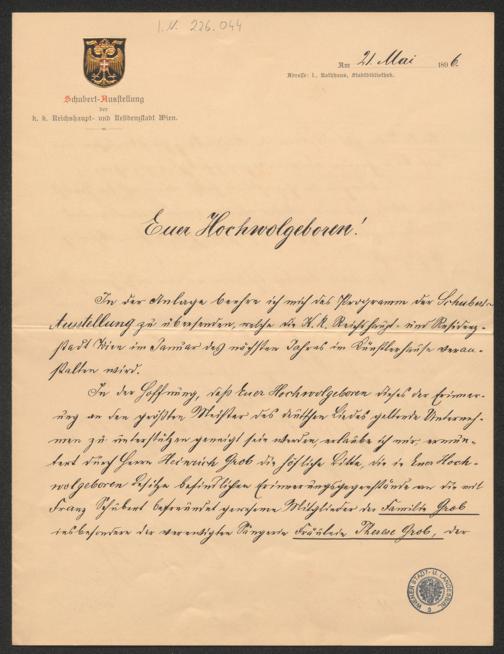 I.N. 226.044
Am 21. Mai 1896.
Adresse: 1., Rathhaus, Stadtbibliothek.
Schubert-Ausstellung
der
k. k. Reichshaupt- und Residenzstadt Wien.
Euer Hochwolgeboren!
In der Anlage beehre ich mich das Programm der Schubert-
Ausstellung zu übersenden, welche die K. K. Reichshaupt- und Residenz-
stadt Wien im Januar des nächsten Jahres im Künstlerhause veran-
stalten wird.
In der Hoffnung, daß Euer Hochwolgeboren dieses der Erinner-
ung an den größten Meister des deutschen Liedes geltende Unterneh-
men zu unterstützen geneigt sein werden, erlaube ich mir, ermun-
tert durch Herrn Heinrich Grob die höfliche Bitte, die in Euer Hoch-
wolgeboren Besitze befindlichen Erinnerungsgegenstände an die mit
Franz Schubert befreundet gewesenen Mitglieder der Familie Grob
insbesondere der verewigten Sängerin Fräulein Therese Grob, der
WIENER STADT- U. LANDESBIBL.